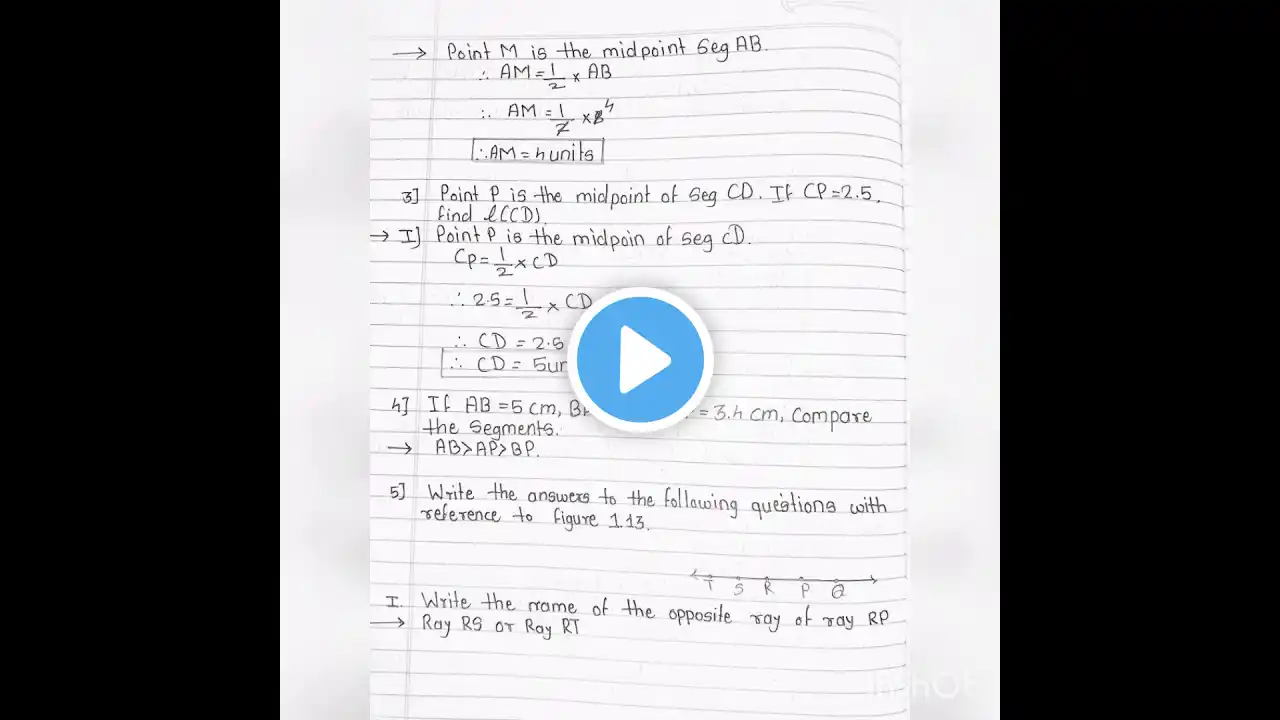 → Point M is the midpoint Seg AB.
∴ AM = 1/2 × AB
∴ AM = 1/2 × 8 4
∴ AM = 4 units
3] Point P is the midpoint of Seg CD. If CP=2.5,
find l(CD).
→ I] Point P is the midpoin of seg CD.
CP = 1/2 × CD
∴ 2.5 = 1/2 × CD
∴ CD = 2.5
∴ CD = 5un
4] If AB = 5 cm, B = 3.4 cm, Compare
the Segments.
→ AB>AP>BP.
5] Write the answers to the following questions with
reference to figure 1.13.
T S R P Q
I. Write the name of the opposite ray of ray RP
→ Ray RS or Ray RT